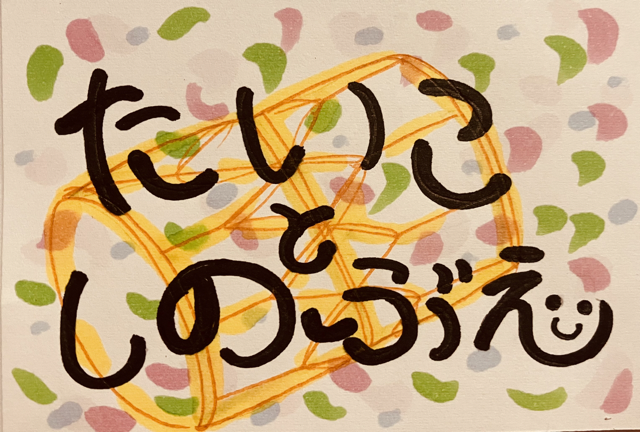 たいこ
と
しのぶえ